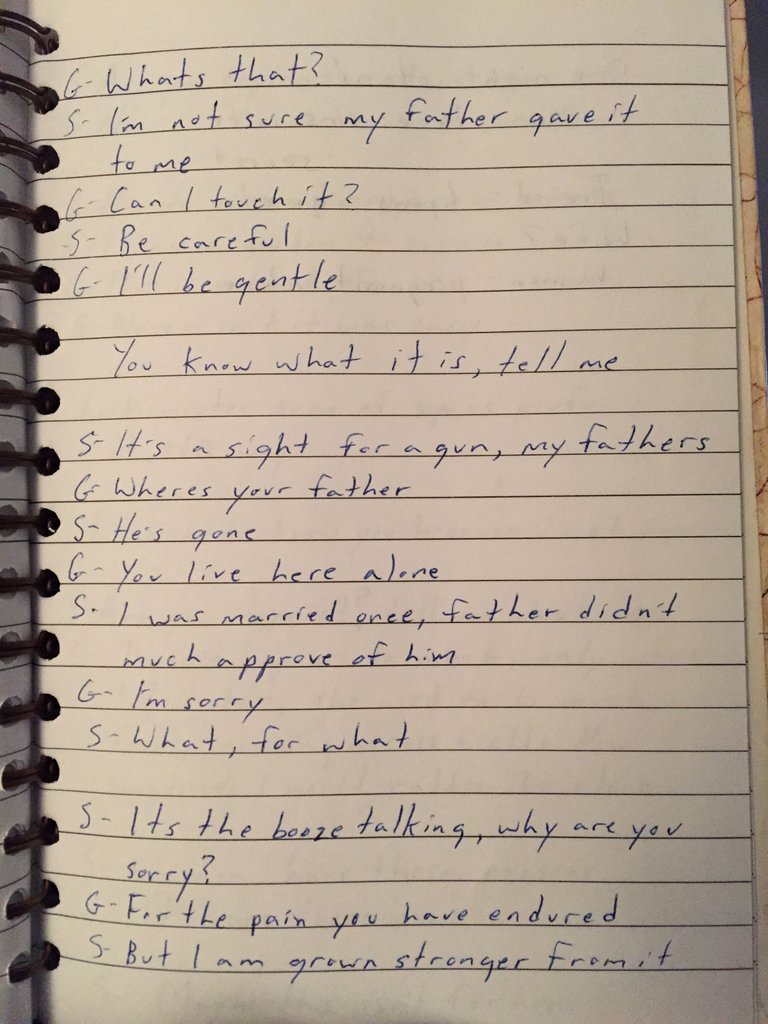 G- Whats that?
S- I'm not sure my father gave it
to me
G- Can I touch it?
S- Be careful
G- I'll be gentle
You know what it is, tell me
S- It's a sight for a gun, my fathers
G- Wheres your father
S- He's gone
G- You live here alone
S- I was married once, father didn't
much approve of him
G- I'm sorry
S- What, for what
S- Its the booze talking, why are you
sorry?
G- For the pain you have endured
S- But I am grown stronger from it